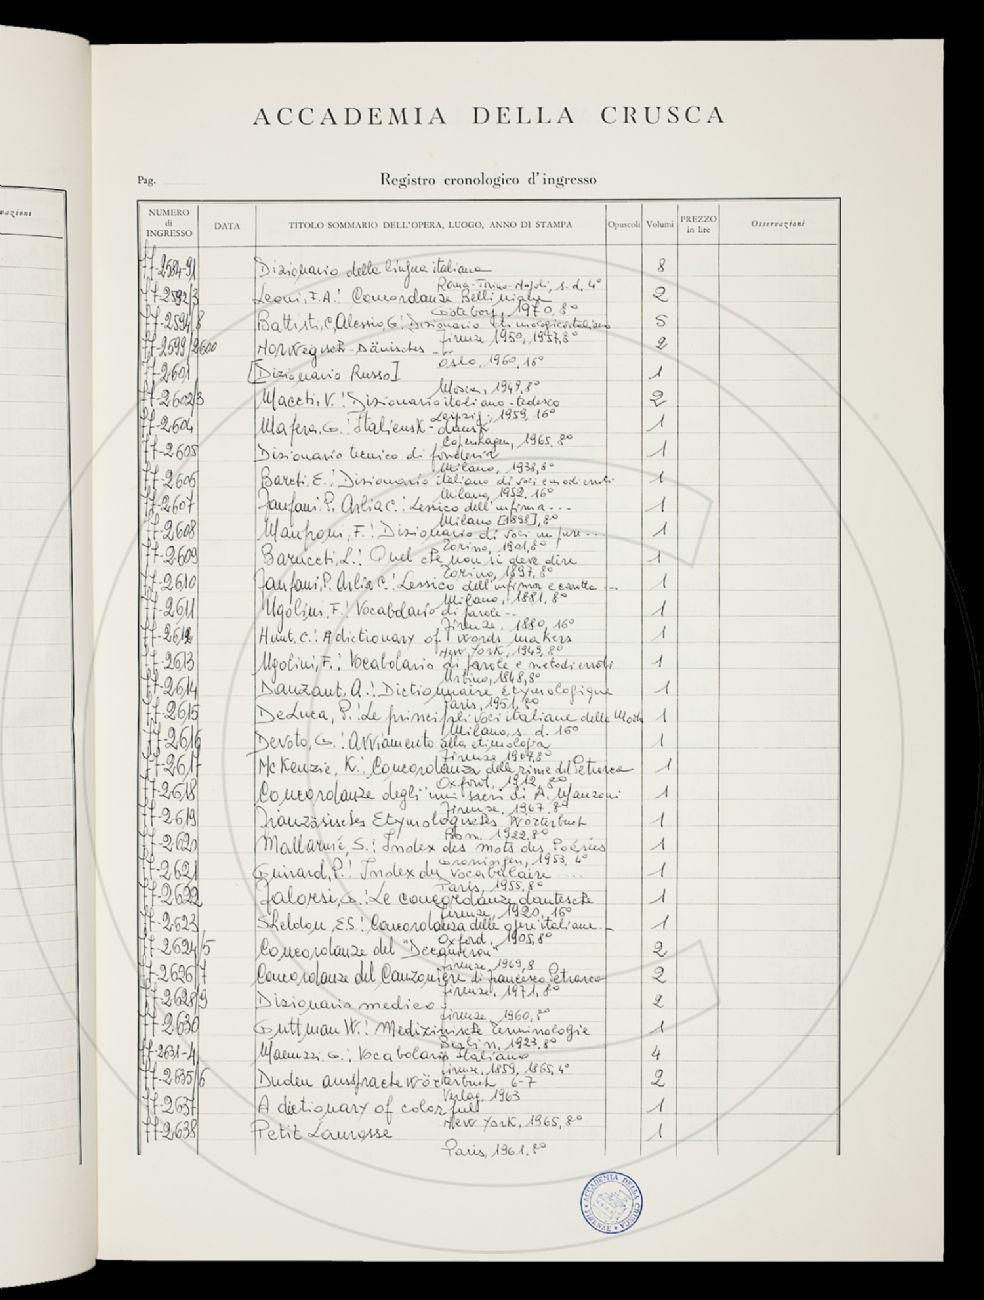 vazioni
ACCADEMIA DELLA CRUSCA
Pag.
Registro cronologico d'ingresso
NUMERO di INGRESSO DATA TITOLO SOMMARIO DELL'OPERA, LUOGO, ANNO DI STAMPA Opuscoli Volumi PREZZO in lire Osservazioni
77-2584-91 Dizionario della lingua italiana 8
Roma-Torino-Napoli, s. d. 4°
77-2592/3 Leoni, F.A.: Concordanze Belliniane 2
1970, 8°
77-2594/8 Battisti, C, Alessio, G: Dizionario etimologico italiano 5
Firenze 1950, 1957, 8°
77-2599/2600 Norwegisch-Dänisches 2
Oslo, 1960, 16°
77-2601 [Dizionario Russo] 1
Mosca, 1949, 8°
77-2602/3 Macchi, V.: Dizionario italiano-tedesco 2
Leipzig, 1959, 16°
77-2604 Mafera, G.: Italiensk-dansk 1
Copenhagen, 1965, 8°
77-2605 Dizionario tecnico di fonderia 1
Milano, 1938, 8°
77-2606 Bareti, E.: Dizionario italiano di voci e modi errati 1
Milano, 1952, 16°
77-2607 Fanfani, P. Arlia C.: Lessico dell'infima... 1
Milano [1898], 8°
77-2608 Manfroni, F.: Dizionario di voci impure... 1
Torino, 1901, 8°
77-2609 Barucchi, L.: Quel che non si deve dire 1
Torino, 1897, 8°
77-2610 Fanfani, P. Arlia C.: Lessico dell'infima e corrotta... 1
Milano, 1881, 8°
77-2611 Ugolini, F.: Vocabolario di parole... 1
Firenze, 1880, 16°
77-2612 Hunt, C.: A dictionary of words makers 1
New York, 1949, 8°
77-2613 Ugolini, F.: Vocabolario di parole e metodi errati 1
Urbino, 1848, 8°
77-2614 Dauzant, A.: Dictionnaire etymologique 1
Paris, 1951, 8°
77-2615 De Luca, P.: Le principali voci italiane della Moda 1
Milano, s. d. 16°
77-2616 Devoto, G.: Avviamento alla etimologia 1
Firenze 1967, 8°
77-2617 Mc Kenzie, K.: Concordanza delle rime del Petrarca 1
Oxford, 1912, 8°
77-2618 Concordanze degli inni sacri di A. Manzoni 1
Firenze, 1967, 8°
77-2619 Französisches Etymologisches Wörterbuch 1
Bonn, 1922, 8°
77-2620 Mallarmé, S.: Index des mots des Poésies 1
Groningen, 1953, 4°
77-2621 Guirard, P.: Index du vocabulaire .... 1
Paris, 1955, 8°
77-2622 Falorsi, G.: Le concordanze dantesche 1
Firenze, 1920, 16°
77-2623 Sheldon, E.S.: Concordanza delle opere italiane... 1
Oxford, 1905, 8°
77-2624/5 Concordanze del "Decameron" 2
Firenze, 1969, 8
77-2626/7 Concordanze del Canzoniere di Francesco Petrarca 2
Firenze, 1971, 8°
77-2628/9 Dizionario medico 2
Firenze, 1960, 8°
77-2630 Guttman W.: Medizinische Terminologie 1
Berlin, 1923, 8°
77-2631-4 Manuzzi, G.: Vocabolario Italiano 4
Firenze, 1859, 1865, 4°
77-2635/6 Duden aussprache wörterbuch 6-7 2
Verlag, 1963
77-2637 A dictionary of colorfull 1
New York, 1965, 8°
77-2638 Petit Laurosse 1
Paris, 1961, 8°
ACCADEMIA DELLA CRUSCA FIRENZE